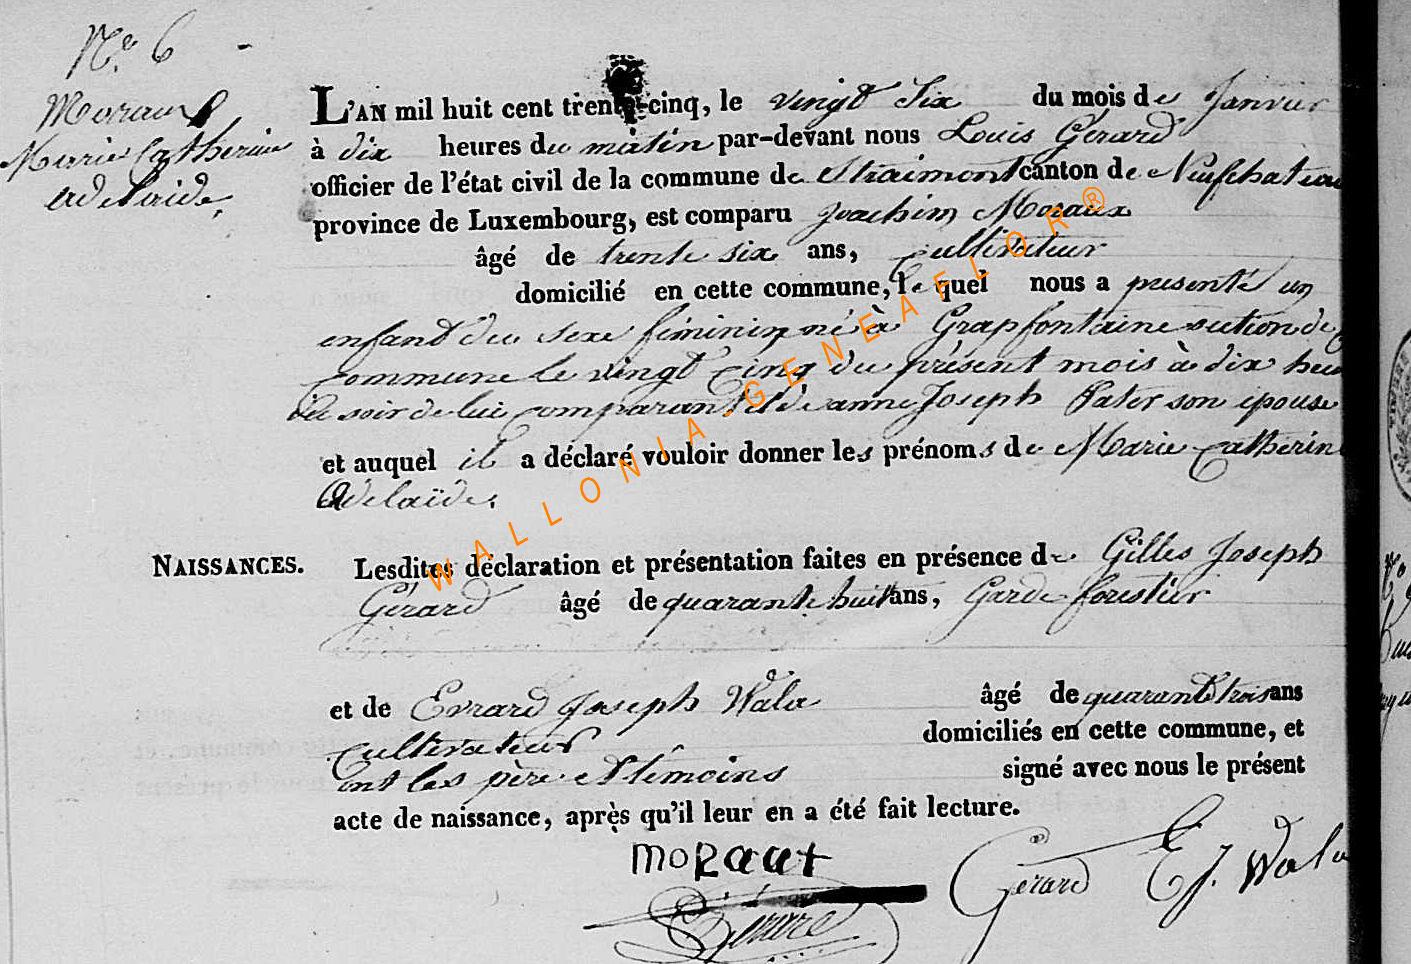 N.° 6
Moraux
Marie Catherine
Adelaïde.
L'AN mil huit cent trente-cinq, le vingt Six du mois de Janvier
à dix heures du matin par-devant nous Louis Gérard
officier de l'état civil de la commune de Straimont canton de Neufchateau
province de Luxembourg, est comparu Joachim Moraux
âgé de trente six ans, Cultivateur
domicilié en cette commune, le quel nous a presenté un
enfant du sexe féminin né à Grapfontaine section de
commune le vingt Cinq du présent mois à dix heu
du soir de lui comparant et de anne Joseph Pater son epouse
et auquel il a déclaré vouloir donner les prénoms de Marie Catherine
Adelaïde.
NAISSANCES. Lesdites déclaration et présentation faites en présence de Gilles Joseph
Gérard âgé de quarante huit ans, Garde forestier
et de Evrard Joseph Wala âgé de quarante trois ans
Cultivateur domiciliés en cette commune, et
ont les père et témoins signé avec nous le présent
acte de naissance, après qu'il leur en a été fait lecture.
moraux
Gérard
E J. Wala
Gérard
WALLONIA.GENEAFLOR®